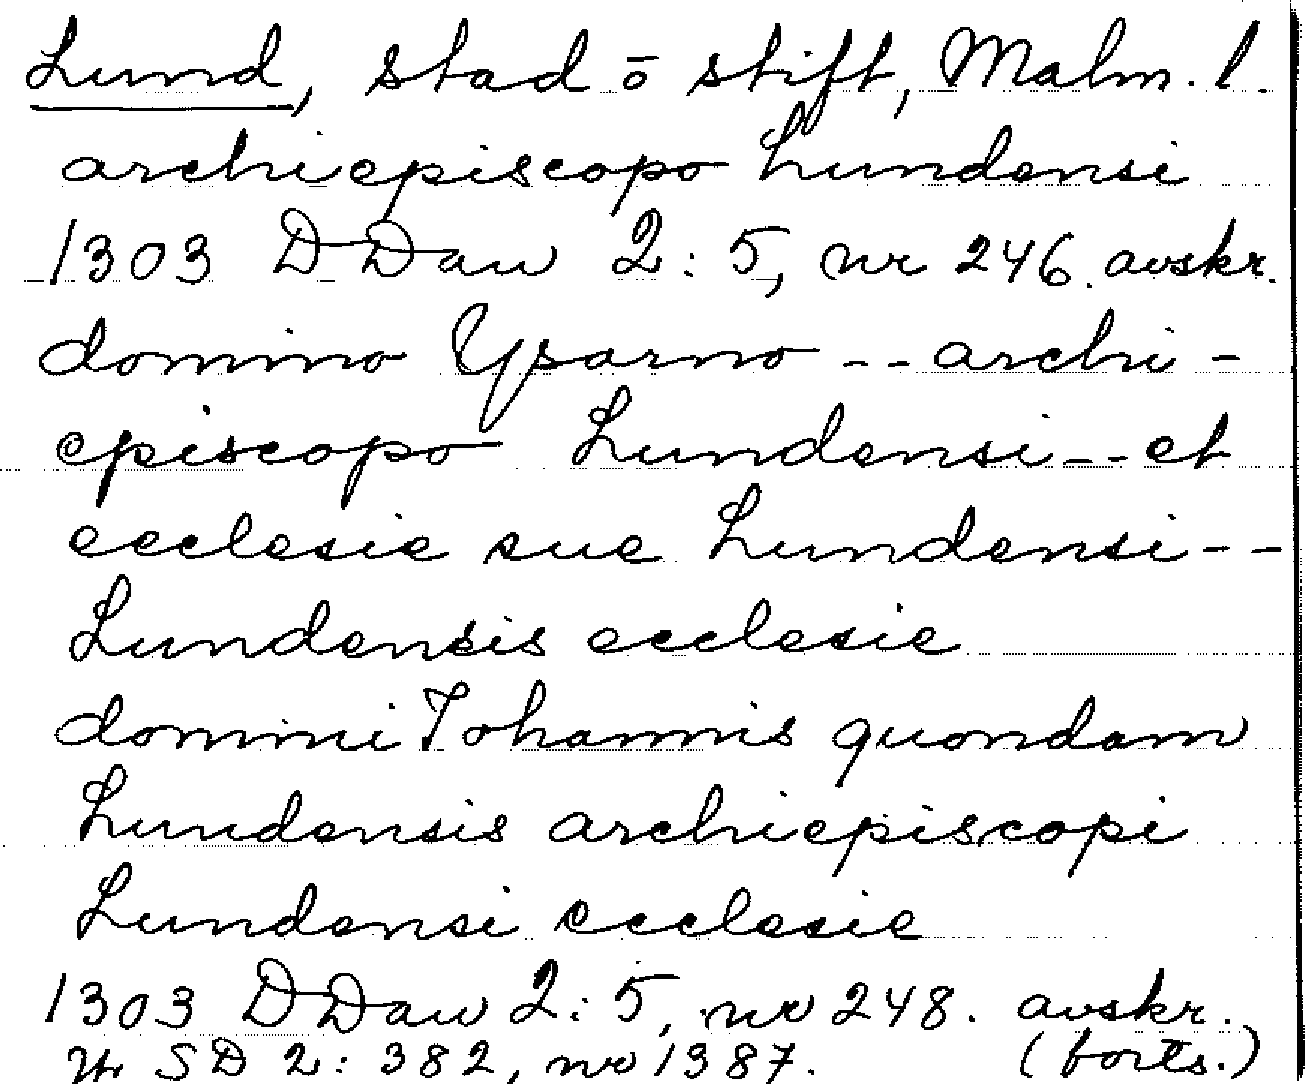 Lund, stad o stift, Malm. l.
archiepiscopo Lundensi
1303 DDan 2:5, nr 246. avskr.
domino Ysarno -- archi-
episcopo Lundensi -- et
ecclesie sue Lundensi --
Lundensis ecclesie
domini Johannis quondam
Lundensis archiepiscopi
Lundensi ecclesie
1303 DDan 2:5, nr 248. avskr.
SD 2:382, nr 1387. (forts.)